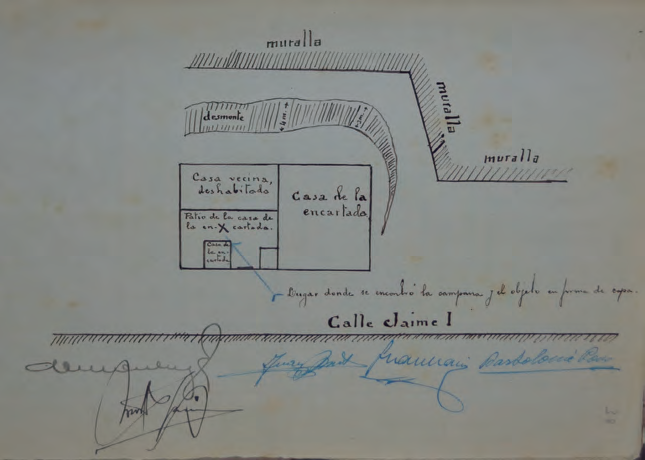 muralla
muralla
muralla
desmonte
Casa vecina,
deshabitada
Casa de la
encartada
Patio de la casa de
la en-X cartada.
Casa de
la en-
cartada
Lugar donde se encontró la campana y el objeto en forma de copa.
Calle Jaime I